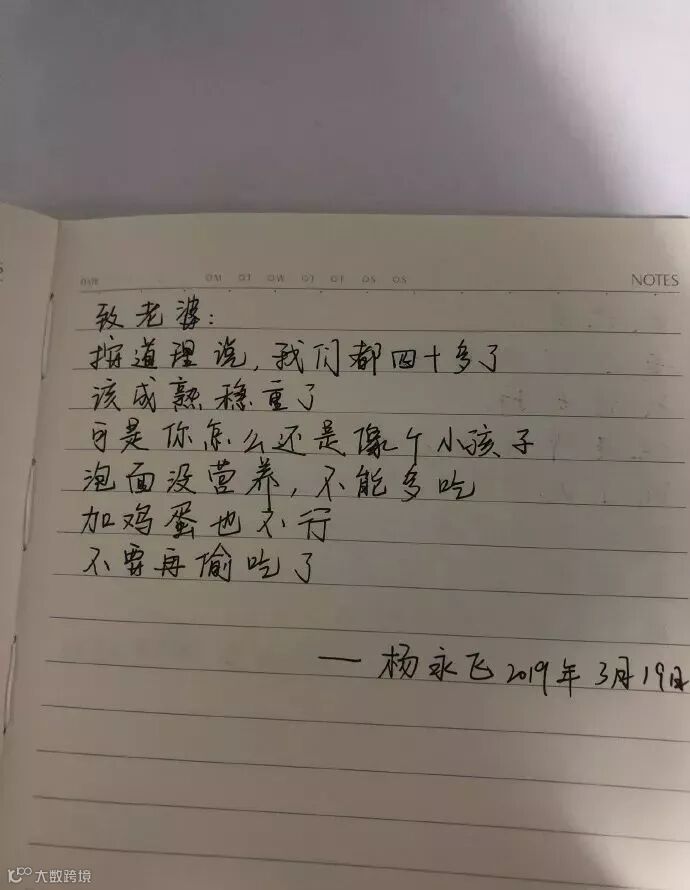 DATE OM OT OW OT OF OS OS NOTES
致老婆:
按道理说,我们都四十多了
该成熟稳重了
可是你怎么还是像个小孩子
泡面没营养,不能多吃
加鸡蛋也不行
不要再偷吃了
— 杨永飞 2019年3月19日
大数跨境